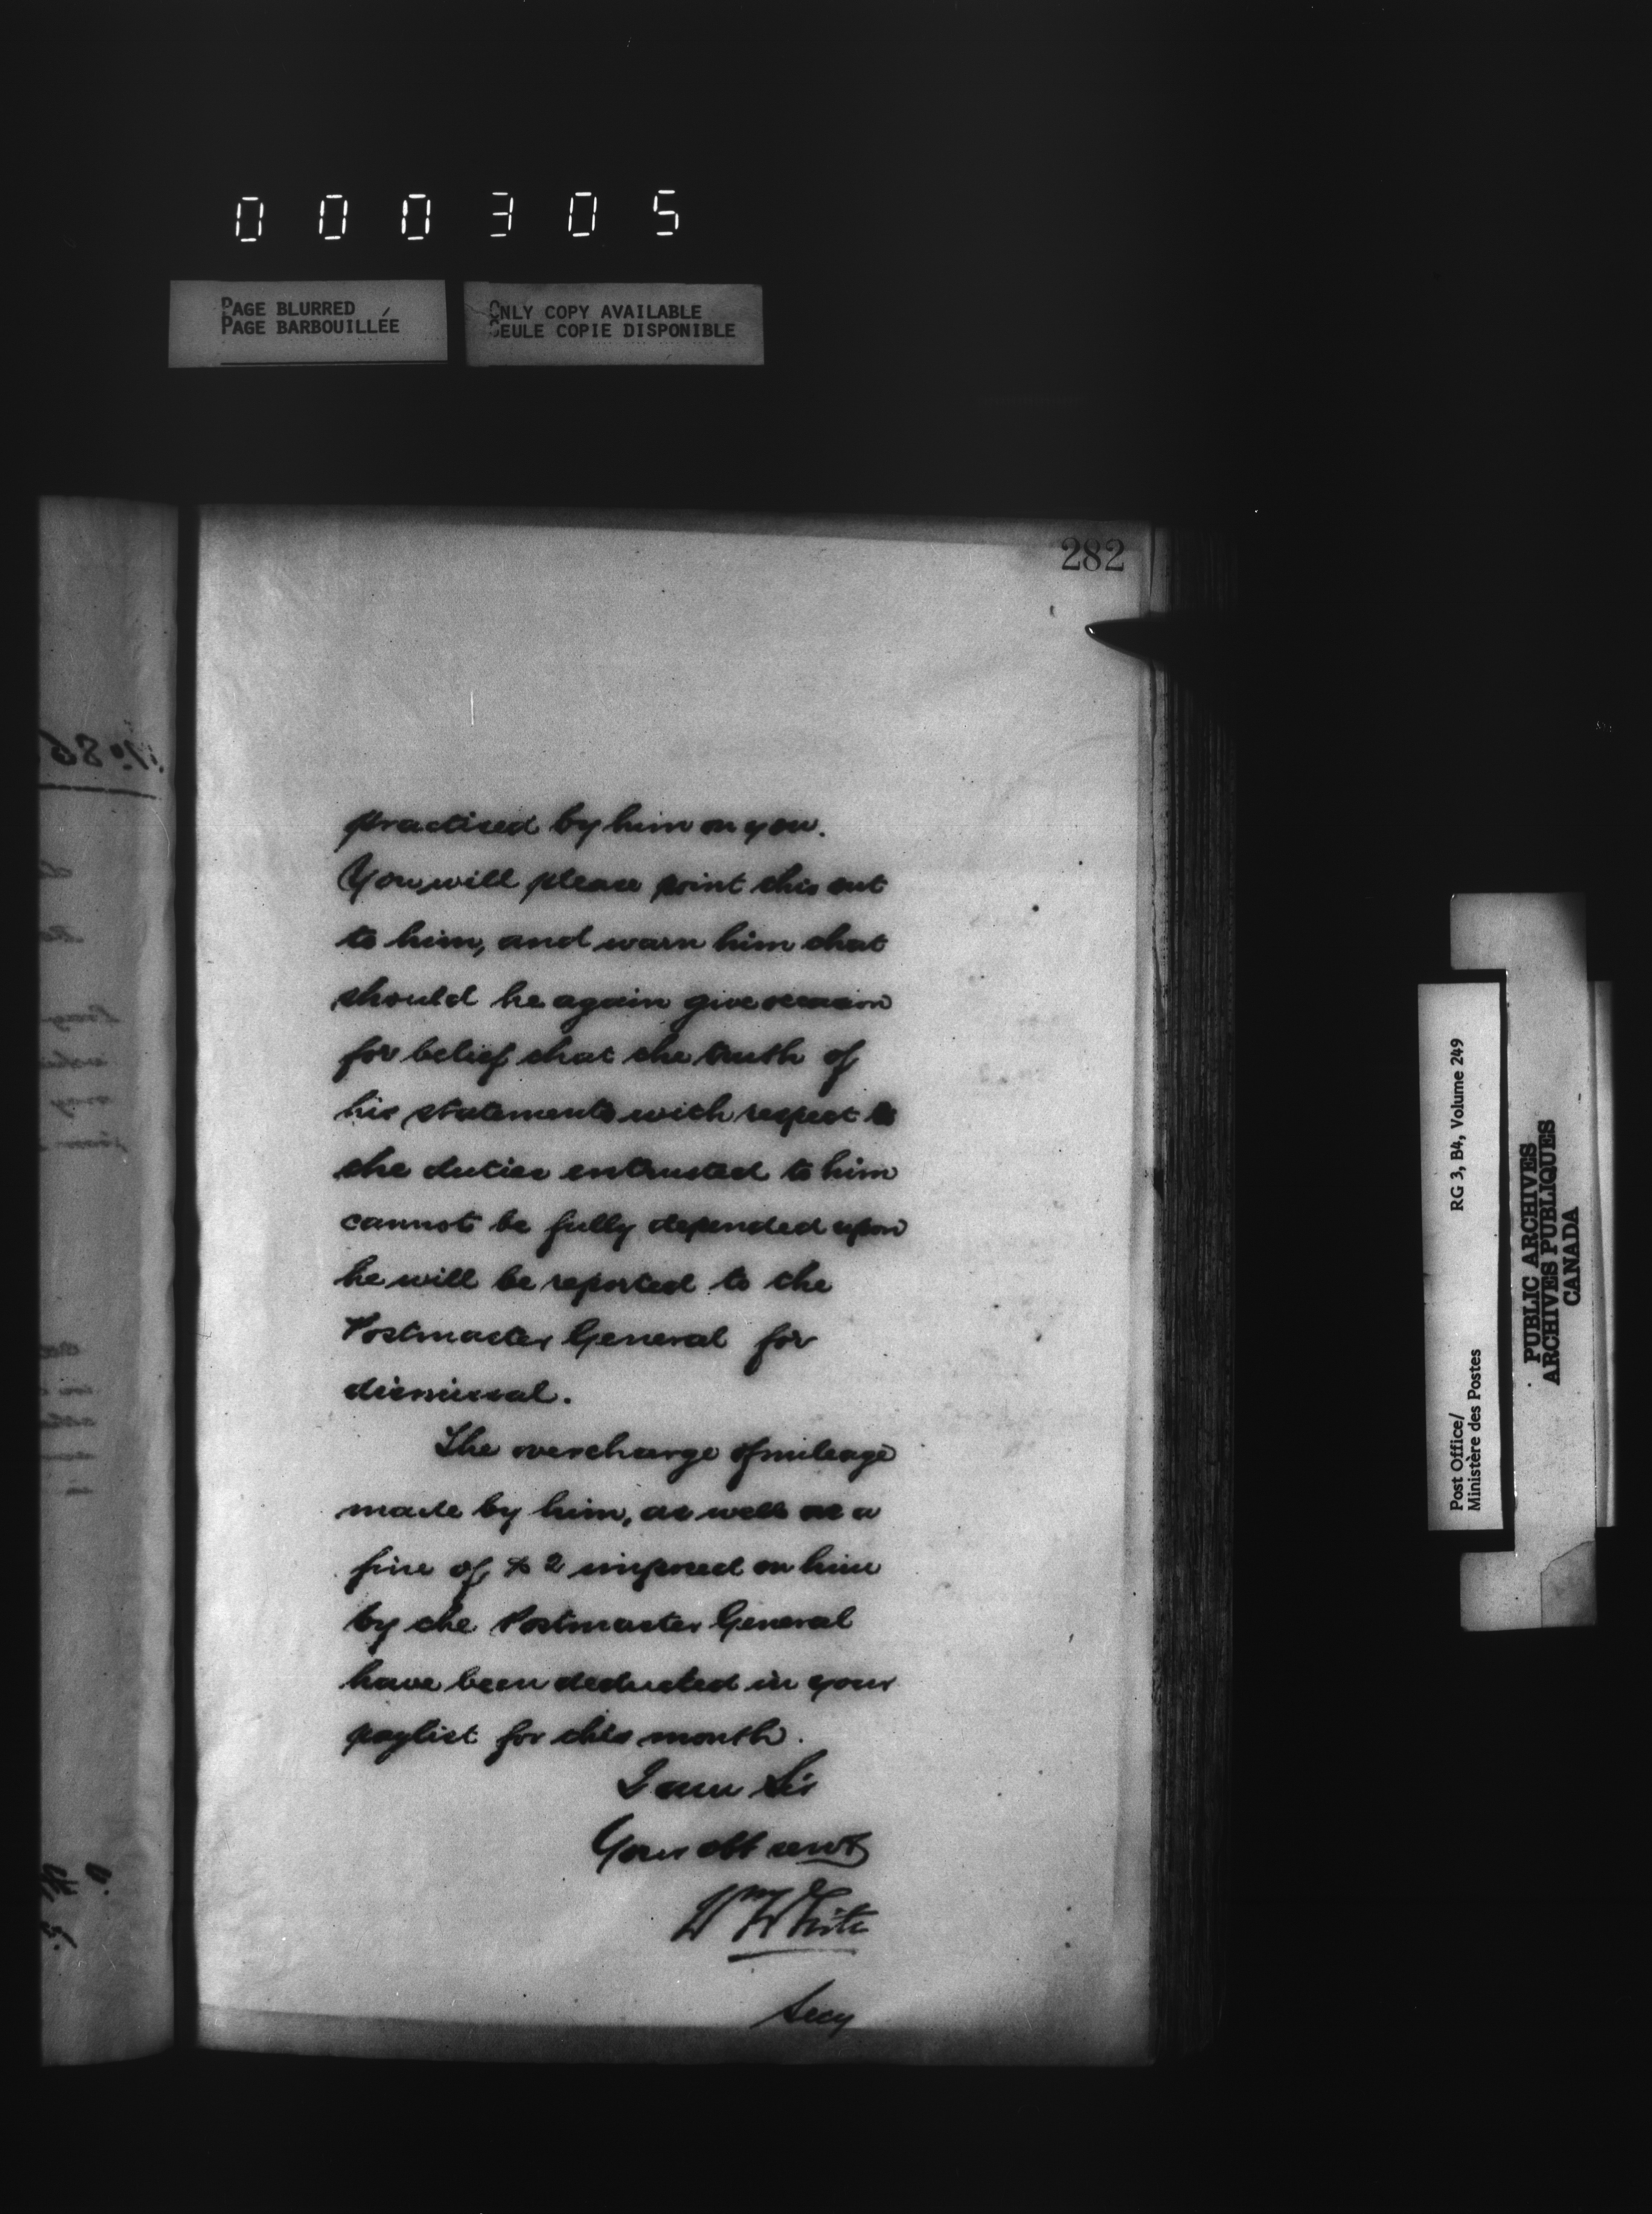 000305
PAGE BLURRED
PAGE BARBOUILLÉE
ONLY COPY AVAILABLE
SEULE COPIE DISPONIBLE
282
practised by him on you.
You will please point this out
to him, and warn him that
should he again give occasion
for belief that the truth of
his statements with respect to
the duties entrusted to him
cannot be fully depended upon
he will be reported to the
Postmaster General for
dismissal.
The overcharge of mileage
made by him, as well as a
fine of $2 imposed on him
by the Postmaster General
have been deducted in your
paylist for this month.
I am Sir
Your obt servt
Wm White
Secy
Post Office/ RG 3, B4, Volume 249
Ministère des Postes
PUBLIC ARCHIVES
ARCHIVES PUBLIQUES
CANADA